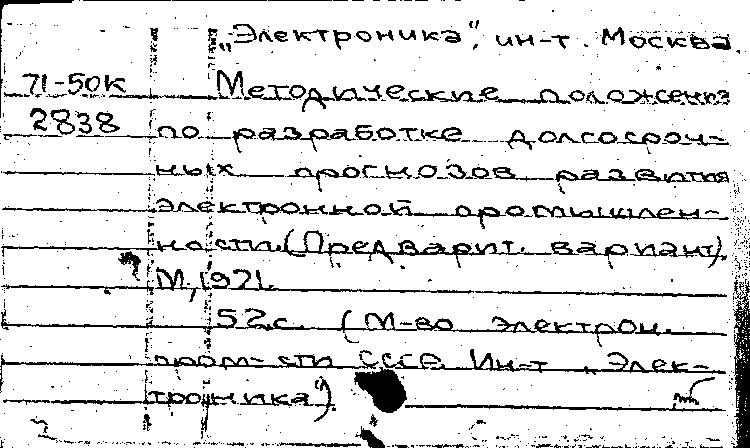 „Электроника", ин-т. Москва.
71-50К Методические положения
2838 по разработке долгосроч-
ных прогнозов развития
электронной промышлен-
ности. (Предварит. вариант).
М, 1971.
52с. (М-во электрон.
пром-сти СССР. Ин-т „Элек-
троника")